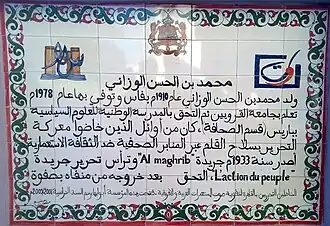 محمد بن الحسن الوزاني
ولد محمد بن الحسن الوزاني عام 1910م بفاس وتوفي بها عام 1978م
تعلم بجامعة القرويين ثم التحق بالمدرسة الوطنية للعلوم السياسية
بباريس (قسم الصحافة). كان من أوائل الذين خاضوا معركة
التحرير بسلاح القلم عبر المنابر الصحفية ضد الثقافة الاستعمارية
أصدر سنة 1933م جريدة "Al maghrib" وترأس تحرير جريدة
"L'action du peuple". التحق بعد خروجه من منفاه بصفوة